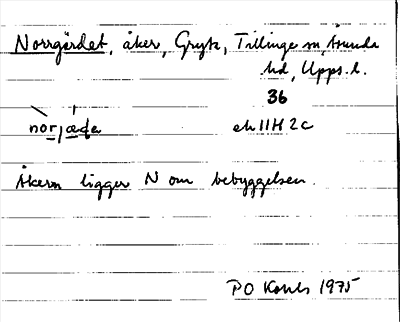 Norrgärdet, åker, Gryta, Tillinge sn, Åsunda
hd, Upps. l.
36
norjæḍe ek 11H 2c
Åkern ligger N om bebyggelsen.
PO 1975